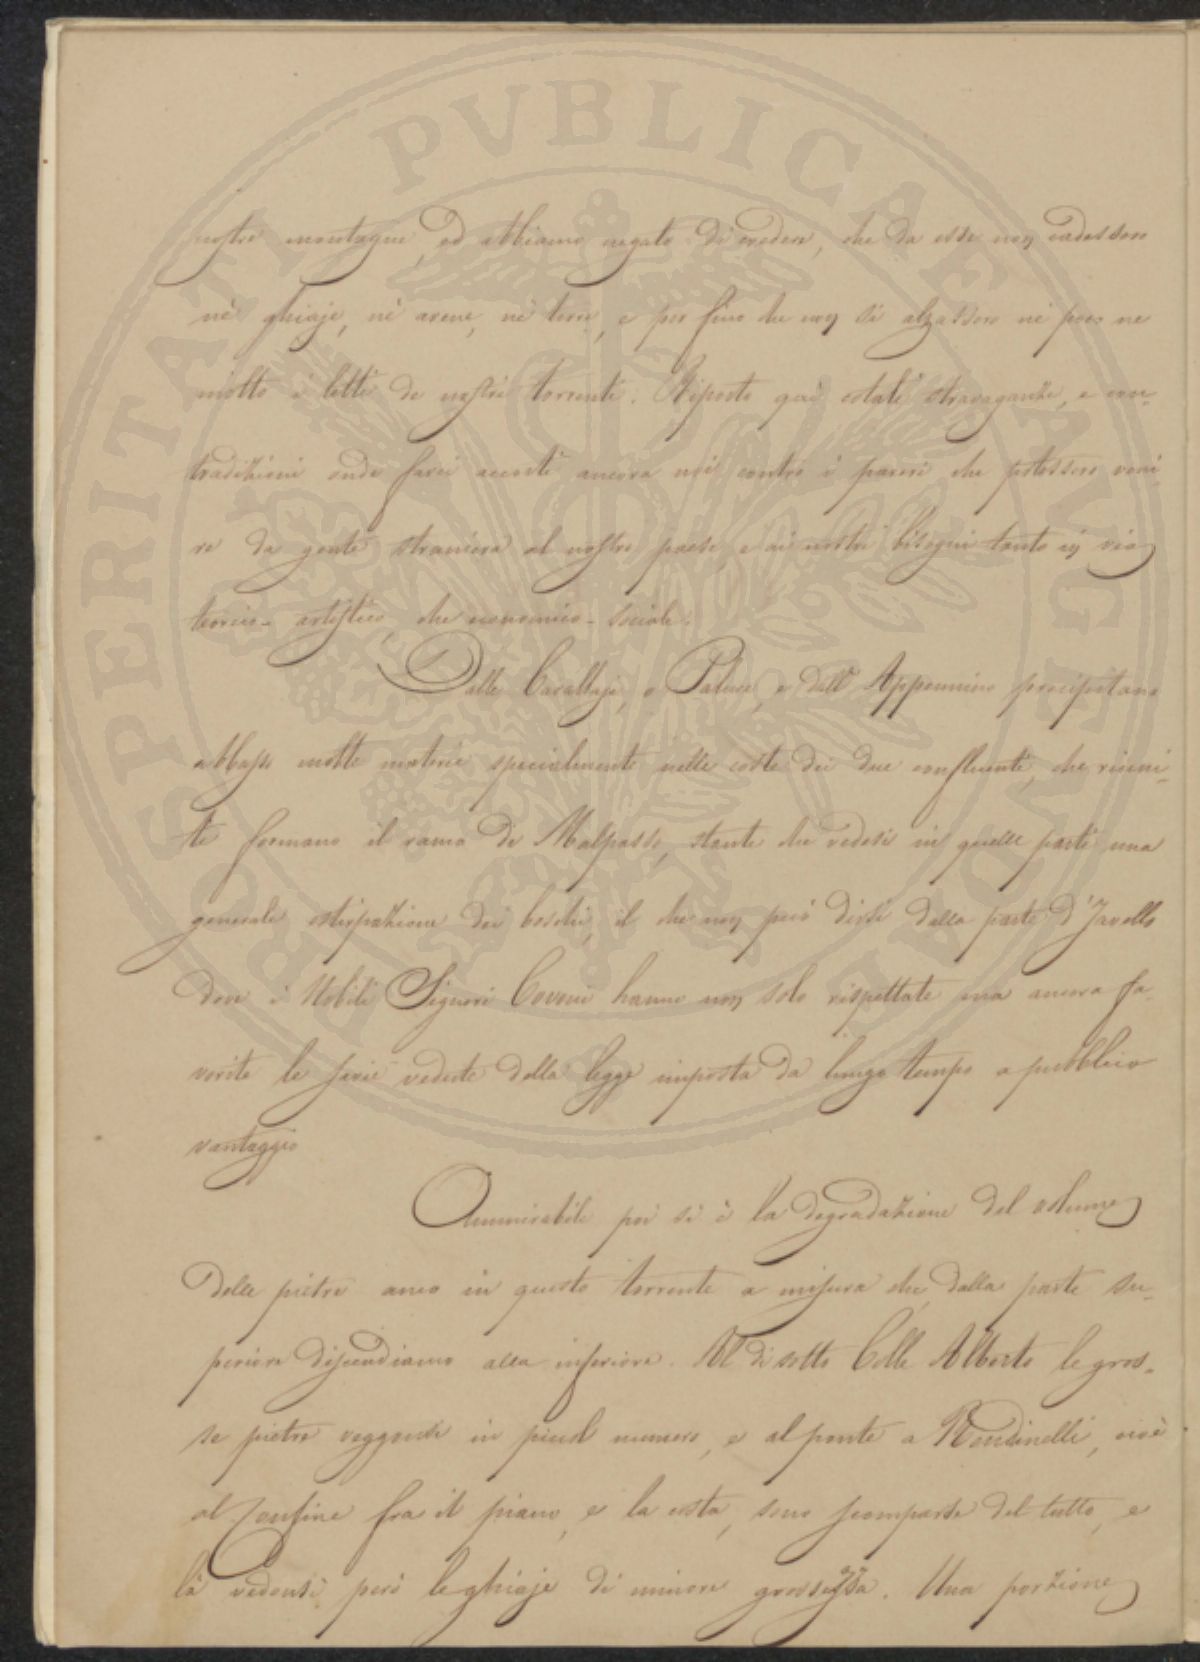 PROSPERITATI PVBLICAE AVGENDAE
nostre montagne, ed abbiamo negato di credere, che da esse non cadessero
nè ghiaje, nè arene, nè terre, e per fino che non si alzassero nè poco ne
molto i letti de nostri torrenti. Riporto quì cotali stravaganze, e con-
tradizioni onde farci accorti ancora noi contro i pareri che potessero veni-
re da gente straniera al nostro paese, e ai nostri bisogni tanto in via
teorico-artistica, che economico-sociale.
Dalle Cavallaje, o Palaie, e dall' Appennino precipitano
abbasso molte materie specialmente nelle coste dei due confluenti, che riuni-
ti formano il ramo di Malpasso, stante che vedesi in quelle parti una
generale estirpazione dei boschi, il che non può dirsi dalla parte d'Javello
dove i Nobili Signori Covoni hanno non solo rispettate ma ancora fa-
vorite le savie vedute della legge imposta da lungo tempo a pubblico
vantaggio
Ammirabile poi si è la degradazione del volume
delle pietre anco in questo torrente a misura che dalla parte su-
periore discendiamo alla inferiore. Al di sotto Colle Alberto le gros-
se pietre veggonsi in piccol numero, e al ponte a Rondinelli, cioè
al confine fra il piano, e la costa, sono scomparse del tutto, e
là vedonsi però le ghiaje di minore grossezza. Una porzione